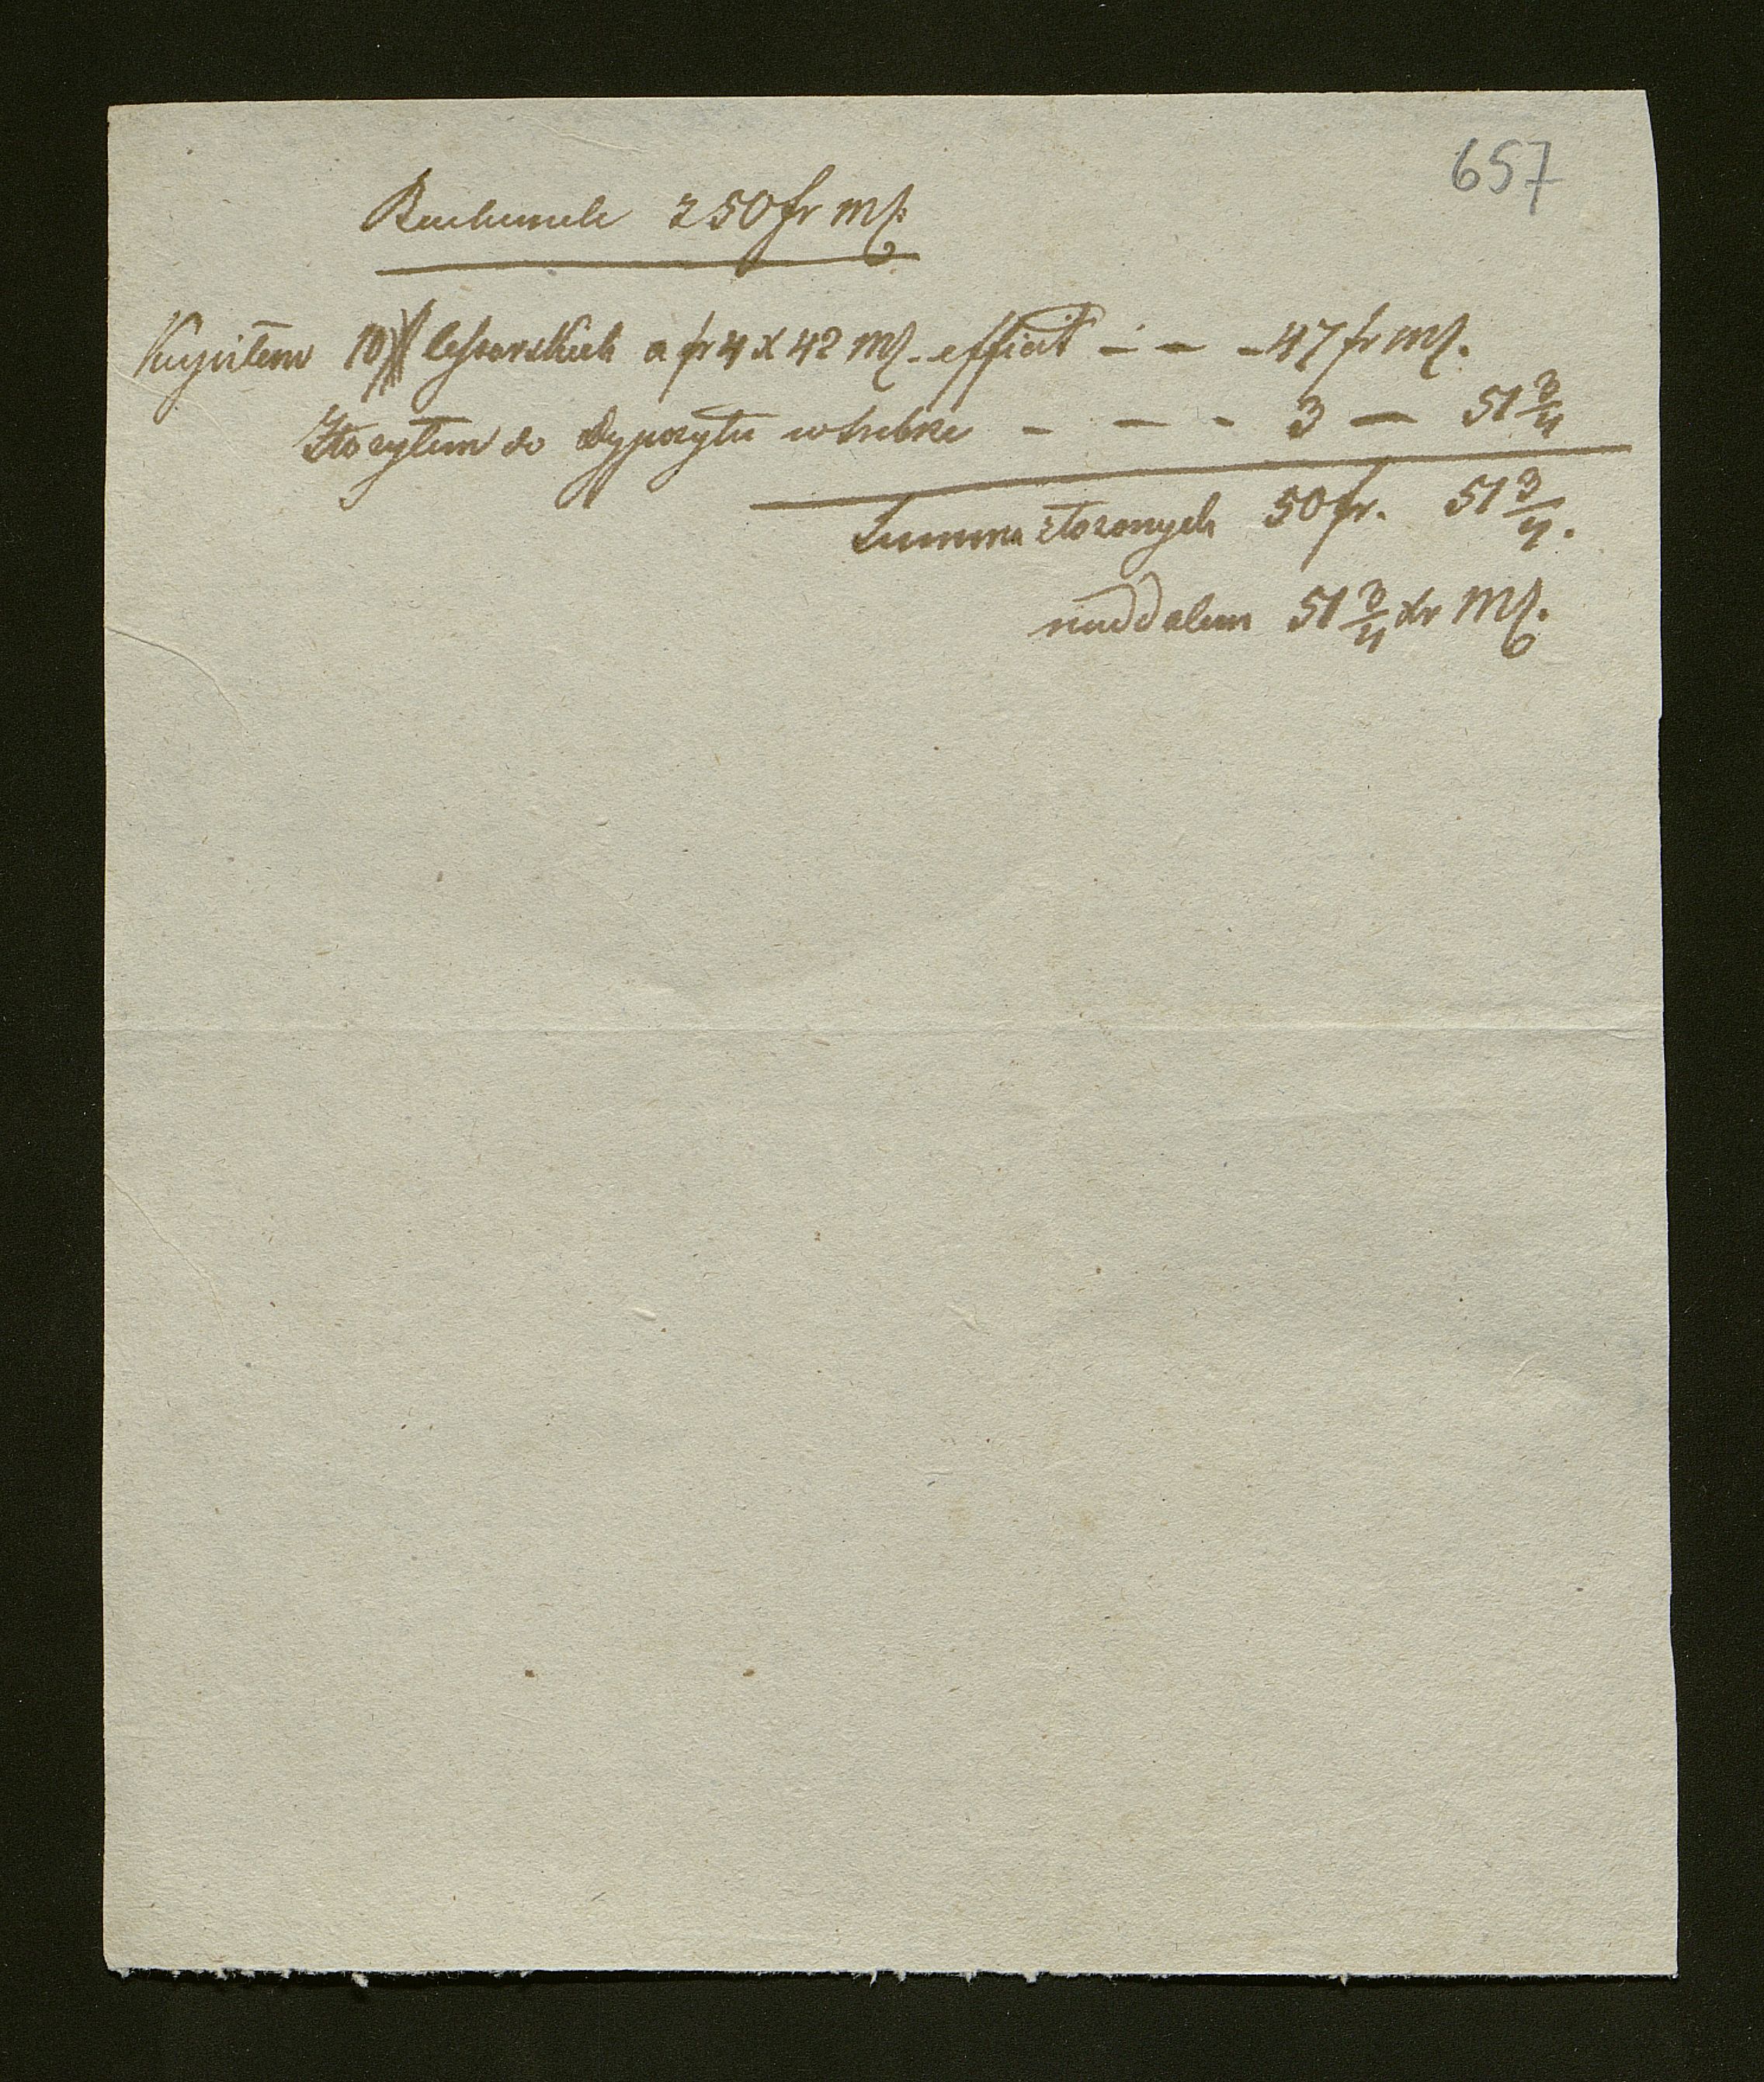 657
Rachunek z 50 fr mk
Kupiłem 10 cesarskich a fr 4 x 42 mk. efficit - - - 47 fr mk.
Złożyłem do Depozytu w srebrze - - - 3 — 51 3/4
Summa złożonych 50 fr. 51 3/4.
naddałem 51 3/4 xr Mk.